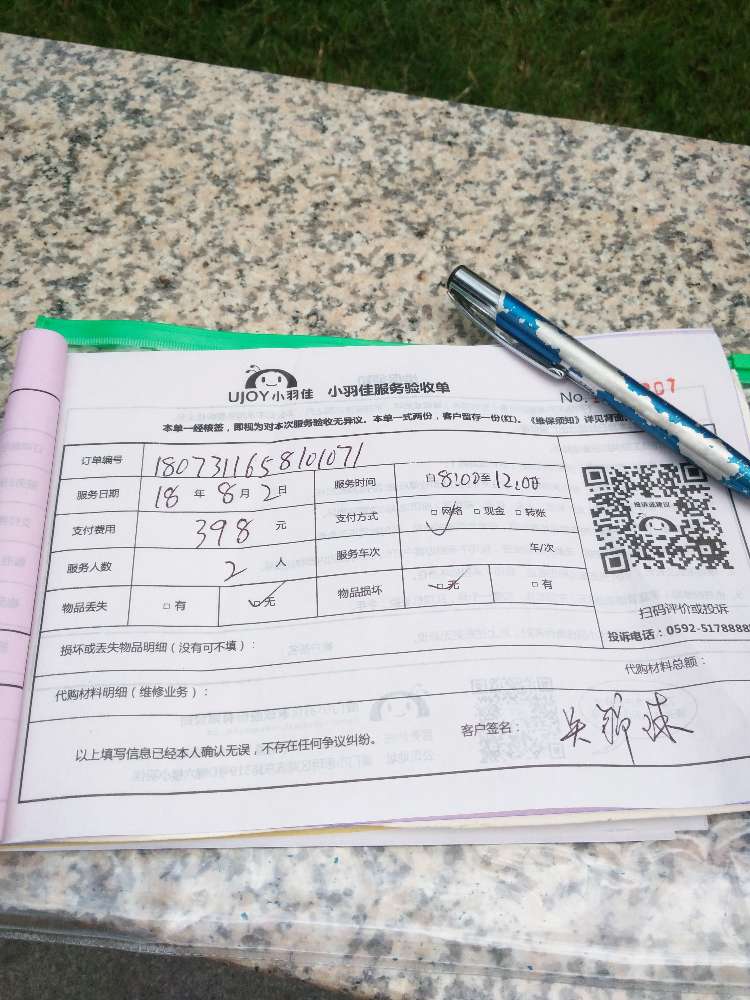 UJOY小羽佳 小羽佳服务验收单
No. 807
本单一经核签,即视为对本次服务验收无异议。本单一式两份,客户留存一份(红)。《维保须知》详见背面。
订单编号 180731165810107​1
服务日期 18 年 8 月 2 日 服务时间 自 8:00 至 12:00
支付费用 398 元 支付方式 □ 网络 □ 现金 □ 转账
服务人数 2 人 服务车次 车/次
物品丢失 □ 有 □ 无 物品损坏 □ 无 □ 有
投诉或建议
扫码评价或投诉
投诉电话:0592-5178888
损坏或丢失物品明细(没有可不填):
代购材料明细(维修业务): 代购材料总额:
以上填写信息已经本人确认无误,不存在任何争议纠纷。 客户签名: